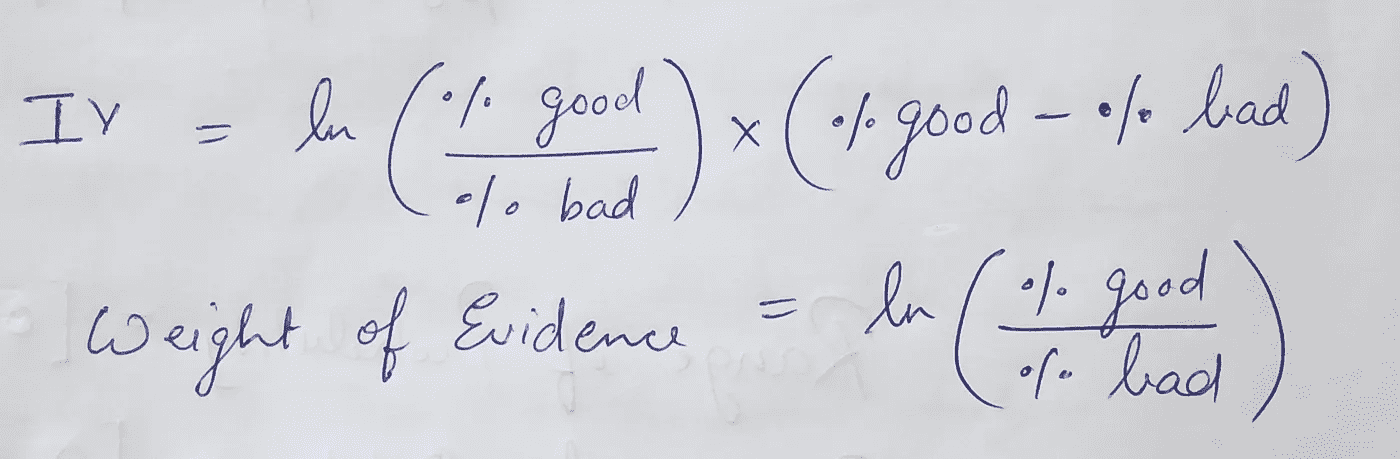 IV = ln (% good / % bad) x (% good - % bad)
Weight of Evidence = ln (% good / % bad)